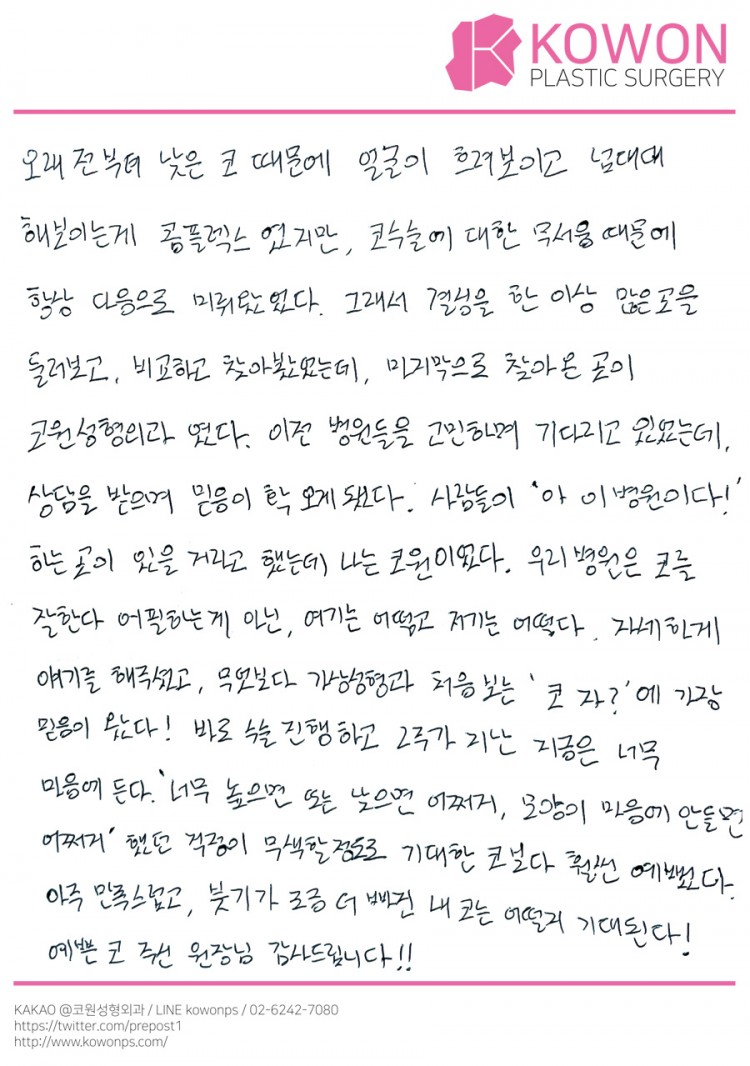 KOWON
PLASTIC SURGERY
오래 전부터 낮은 코 때문에 얼굴이 흐려보이고 넙대대
해보이는게 콤플렉스 였지만, 코수술에 대한 무서움 때문에
항상 다음으로 미뤄왔었다. 그래서 결심을 한 이상 많은곳을
둘러보고, 비교하고 찾아봤었는데, 마지막으로 찾아온 곳이
코원성형외과 였다. 이전 병원들을 고민하며 기다리고 있었는데,
상담을 받으며 믿음이 확 오게 됐다. 사람들이 '아 이병원이다!'
하는 곳이 있을 거라고 했는데, 나는 코원이었다. 우리병원은 코를
잘한다 어필하는게 아닌, 여기는 어떻고 저기는 어떻다. 자세하게
얘기를 해주셨고, 무엇보다 가상성형과 처음보는 '코 자?'에 가장
믿음이 왔다! 바로 수술 진행하고 2주가 지난 지금은 너무
마음에 든다. '너무 높으면 또는 낮으면 어쩌지, 모양이 마음에 안들면
어쩌지' 했던 걱정이 무색할정도로 기대한 코보다 훨씬 예뻤다.
아주 만족스럽고, 붓기가 조금 더 빠진 내 코는 어떨지 기대된다!
예쁜 코 주신 원장님 감사드립니다!!
KAKAO @코원성형외과 / LINE kowonps / 02-6242-7080
https://twitter.com/prepost1
http://www.kowonps.com/